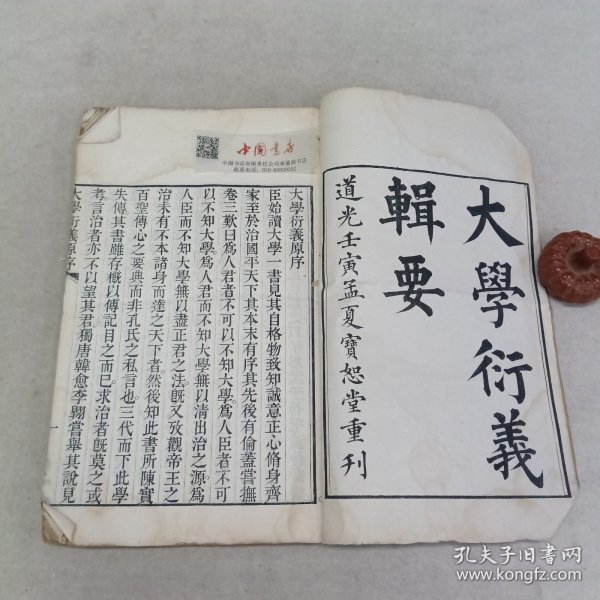 大學衍義
輯要
道光壬寅孟夏寶恕堂重刊
中國書店
中国书店有限责任公司来薰阁书店
大學衍義原序
臣始讀大學一書見其自格物致知誠意正心脩身齊
家至於治國平天下其本末有序其先後有倫蓋嘗撫
卷三歎曰爲人君者不可以不知大學爲人臣者不可
以不知大學爲人君而不知大學無以清出治之源爲
人臣而不知大學無以盡正君之法旣又攷觀帝王之
治未有不本諸身而達之天下者然後知此書所陳實
百聖傳心之要典而非孔氏之私言也三代而下此學
失傳其書雖存槪以傳記目之而已求治者旣莫之或
考言治者亦不以望其君獨唐韓愈李翺嘗舉其說見
大學衍義原序
一
孔夫子旧书网
www.kongfz.com